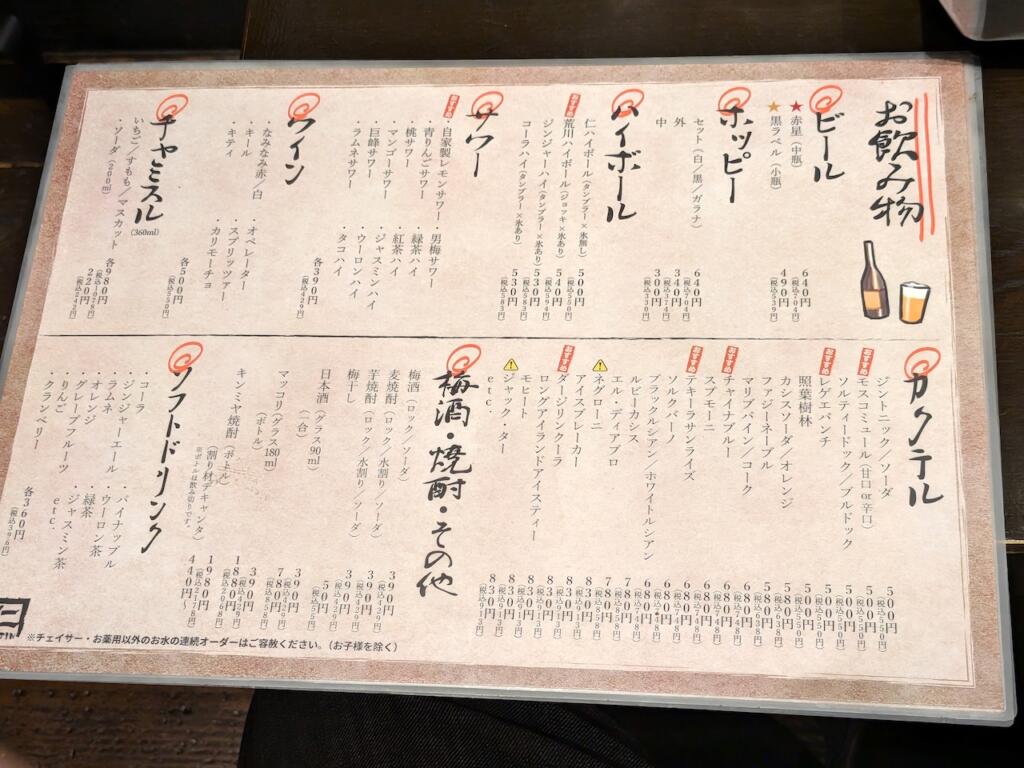 お飲み物
ビール
赤星(中瓶)
640円
(税込704円)
黒ラベル(小瓶)
490円
(税込539円)
ホッピー
セット(白/黒/ガラナ)
640円
(税込704円)
外
340円
(税込374円)
中
300円
(税込330円)
ハイボール
仁ハイボール(タンブラー×氷無し)
500円
(税込550円)
おすすめ
荒川ハイボール(ジョッキ×氷あり)
540円
(税込594円)
ジンジャーハイ(タンブラー×氷あり)
530円
(税込583円)
コーラハイ(タンブラー×氷あり)
530円
(税込583円)
サワー
おすすめ
・自家製レモンサワー
・青りんごサワー
・桃サワー
・マンゴーサワー
・巨峰サワー
・ラムネサワー
・男梅サワー
・緑茶ハイ
・紅茶ハイ
・ジャスミンハイ
・ウーロンハイ
・タコハイ
各390円
(税込429円)
ワイン
・なみなみ赤/白
・キール
・キティ
・オペレーター
・スプリッツァー
・カリモーチョ
各500円
(税込550円)
チャミスル
(360ml)
いちご/すもも/マスカット
各980円
(税込1078円)
・ソーダ(200ml)
220円
(税込242円)
カクテル
ジントニック/ソーダ
500円
(税込550円)
おすすめ
モスコミュール(甘口or辛口)
500円
(税込550円)
ソルティードック/ブルドック
500円
(税込550円)
おすすめ
レゲエパンチ
500円
(税込550円)
照葉樹林
500円
(税込550円)
カシスソーダ/オレンジ
580円
(税込638円)
ファジーネーブル
580円
(税込638円)
マリブパイン/コーク
680円
(税込748円)
おすすめ
チャイナブルー
680円
(税込748円)
スプモーニ
680円
(税込748円)
おすすめ
テキーラサンライズ
680円
(税込748円)
ソルクバーノ
680円
(税込748円)
ブラックルシアン/ホワイトルシアン
680円
(税込748円)
ルビーカシス
780円
(税込858円)
エル・ディアブロ
780円
(税込858円)
ネグローニ
880円
アイスブレーカー
830円
(税込913円)
おすすめ
ダージリンクーラ
830円
(税込913円)
ロングアイランドアイスティー
880円
モヒート
830円
(税込913円)
・ジャック・ター
830円
etc.
830円
(税込913円)
梅酒・焼酎・その他
梅酒(ロック/ソーダ)
390円
(税込429円)
麦焼酎(ロック/水割り/ソーダ)
390円
(税込429円)
芋焼酎(ロック/水割り/ソーダ)
390円
(税込429円)
梅干し
50円
(税込55円)
日本酒(グラス90ml)
390円
(税込429円)
(一合)
780円
(税込858円)
マッコリ(グラス180ml)
390円
(税込429円)
(ボトル)
1880円
(税込2068円)
キンミヤ焼酎(ボトル)
1980円
(税込2178円)
(割り材デキャンタ)
440円〜
※ボトルは飲み切りです。
ソフトドリンク
・コーラ
・ジンジャーエール
・ラムネ
・オレンジ
・グレープフルーツ
・りんご
・クランベリー
・パイナップル
・ウーロン茶
・緑茶
・ジャスミン茶
etc.
各360円
(税込396円)
※チェイサー・お薬用以外のお水の連続オーダーはご容赦ください。(お子様を除く)
仁